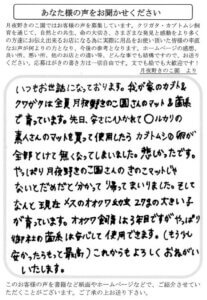 あなたの声をお聞かせください
月夜野きのこ園ではお客様の声を募集しています。クワガタ・カブトムシ飼
育を通じて、自然との共生、命の大切さ、さまざまな発見と感動をより多く
の方達にお伝え出来るお店になる為に実際に用品をお使い頂いた皆様の率直
なお声が何よりの力となり、今後の参考となります。ホームページの感想、
良い所、他のお店との違い等、どんな事でも結構ですので、お送り
ください。応募はがきの書き方は一切自由です。文字でも絵でも大歓迎です！
月夜野きのこ園　より
いつもお世話になっております。我が家のカブト&
クワガタは全員月夜野きのこ園さんのマット&菌床
で育っています。先日、安さにひかれて〇ルカリの
素人さんのマットを買って使用したらカブトムシの卵が
全部とけて無くなってしまいました。悲しかったです。
やっぱり月夜野きのこ園さんのきのこマットじゃ
ないとだめだと分かって帰ってまいりました。そして
なんと現在メスのオオクワ幼虫27gの大きい子
が育っています。オオクワ飼育は3年目ですがやっぱり
御社の菌床は安心して使用できます。（もう少し
安かったらもっと最高）これからもよろしくおねがい
いたします。
このお客様の声を書籍など紙面やホームページなどで、ご紹介させてい
ただくことがございます。ご了承の上お送り下さい。